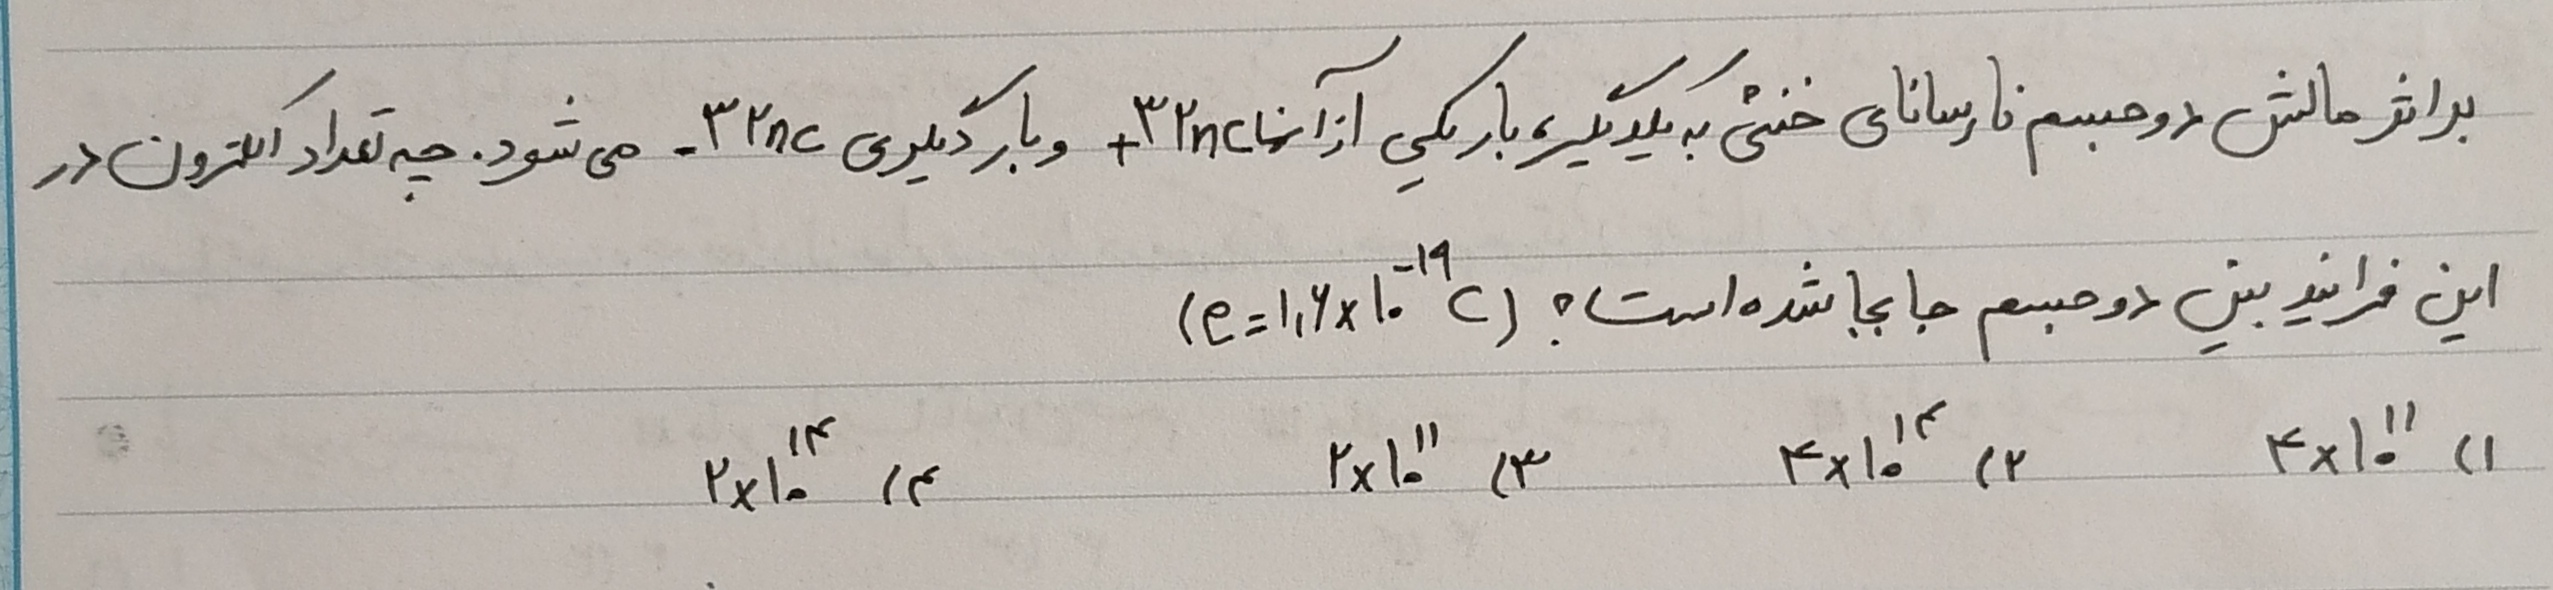 براثر مالش دو جسم نارسانای خنثی به یکدیگر، بار یکی از آنها +۳۲nC و بار دیگری -۳۲nC می شود. چه تعداد الکترون در
این فرایند بین دو جسم جابجا شده است؟ (e=۱,۶×۱۰^-۱۹ C)
۱) ۴×۱۰^۱۱ ۲) ۴×۱۰^۱۴ ۳) ۲×۱۰^۱۱ ۴) ۲×۱۰^۱۴